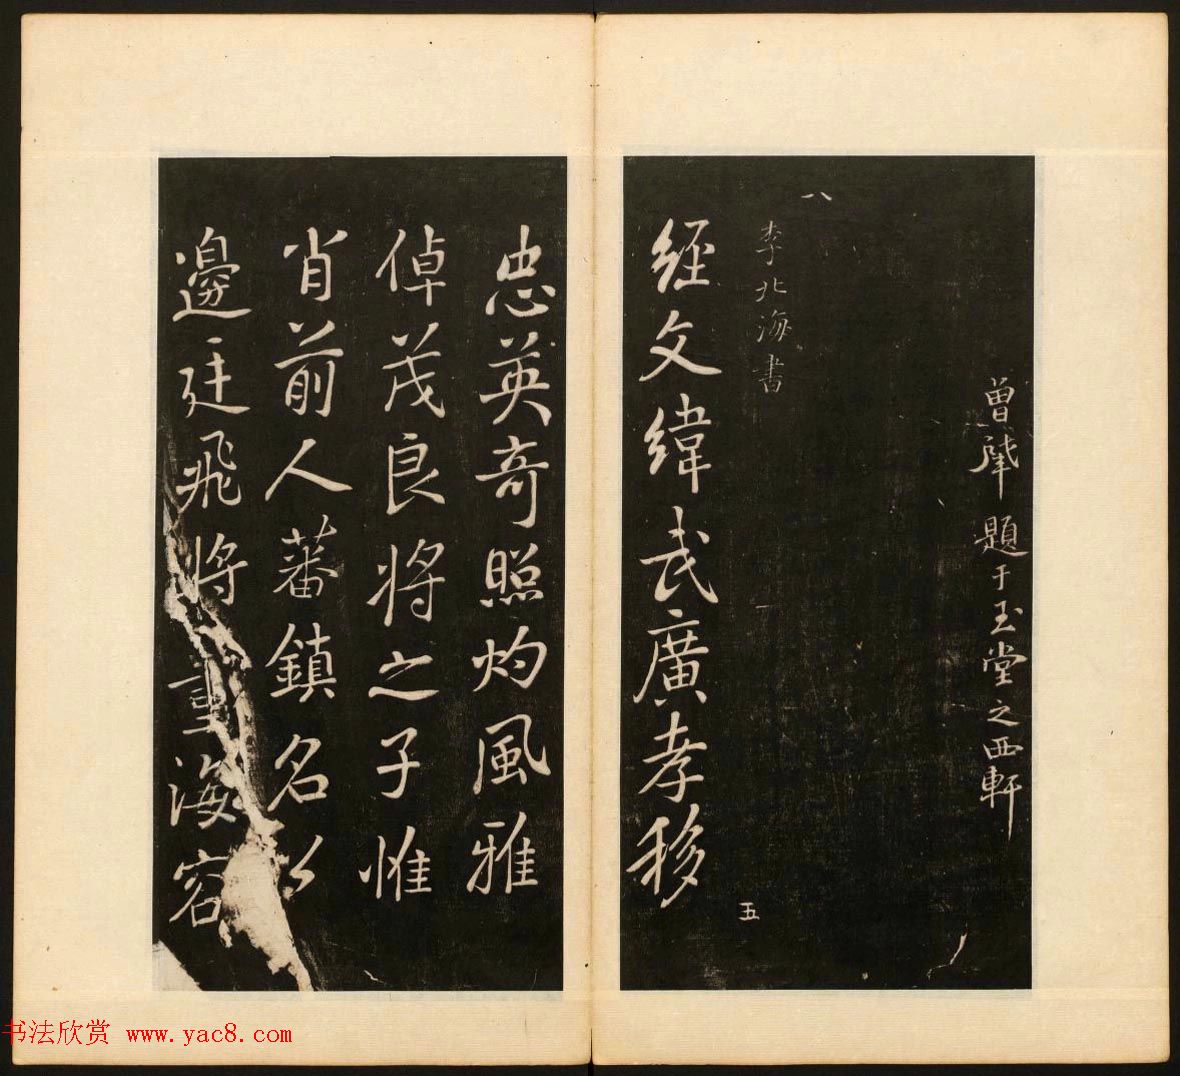 曾肇題于玉堂之西軒
八
李北海書
五
經文緯武廣孝移
忠英奇照灼風雅
倬茂良將之子惟
肖前人蕃鎮名公
邊廷飛將重海容
书法欣赏 www.yac8.com